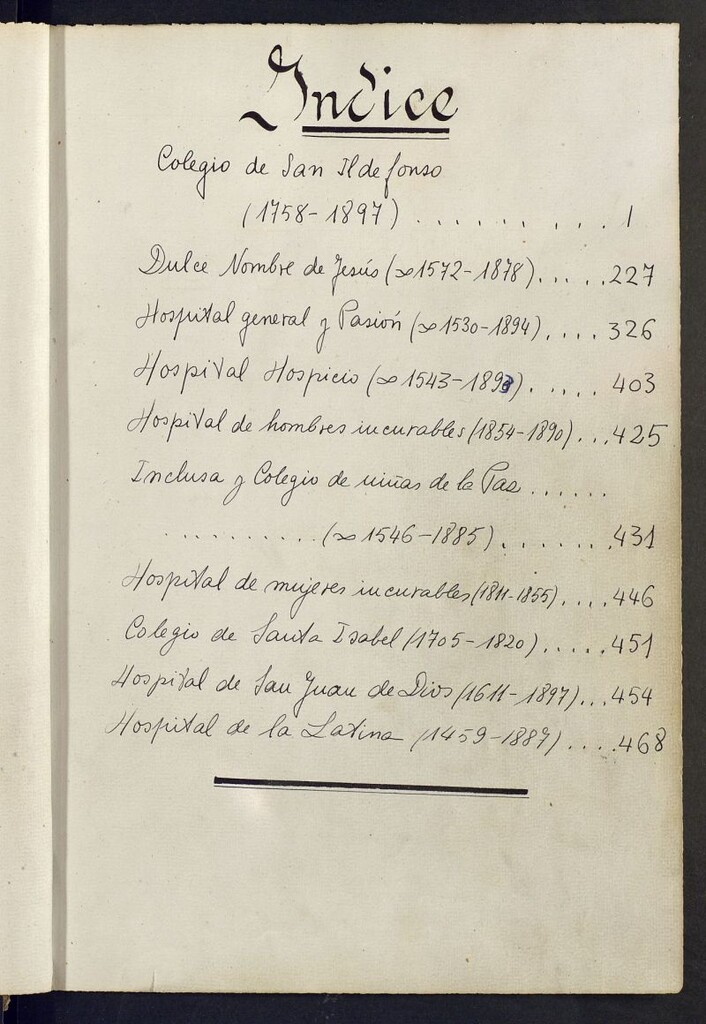 Indice
Colegio de San Ildefonso
(1758-1897) .......... 1
Dulce Nombre de Jesús (∞1572-1878)......227
Hospital general y Pasión (∞1530-1894).....326
Hospital Hospicio (∞1543-1893)......403
Hospital de hombres incurables (1854-1890)...425
Inclusa y Colegio de niñas de la Paz ......
..........(∞1546-1885).......431
Hospital de mujeres incurables (1811-1855)....446
Colegio de Santa Isabel (1705-1820).....451
Hospital de San Juan de Dios (1611-1897)...454
Hospital de la Latina (1459-1887)....468